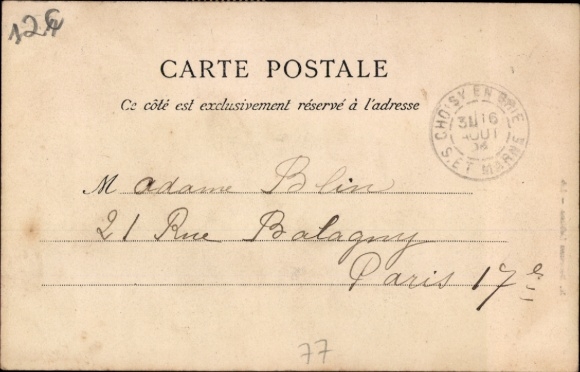 12€
CARTE POSTALE
Ce côté est exclusivement réservé à l'adresse
CHOISY EN BRIE
16
AOUT
04
S. ET MARNE
Madame Blin
21 Rue Balagny
Paris 17e
77